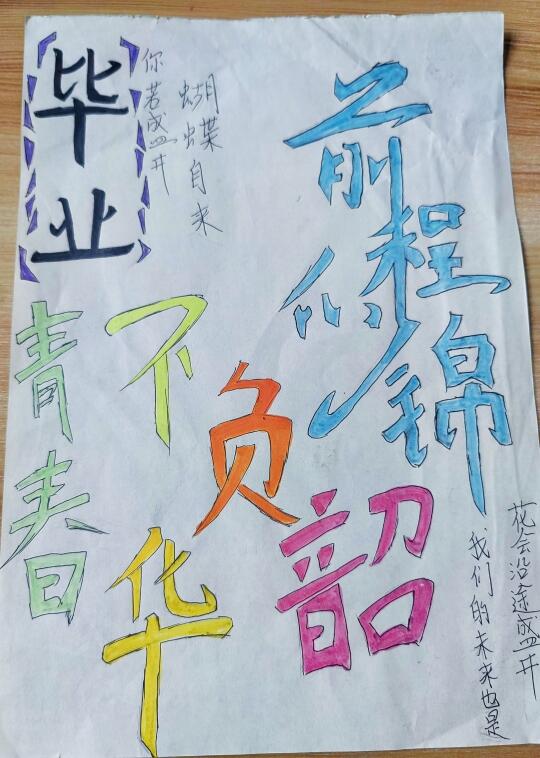 毕业
你若盛开
蝴蝶自来
前程似锦
青春
不负韶华
花会沿途盛开
我们的未来也是